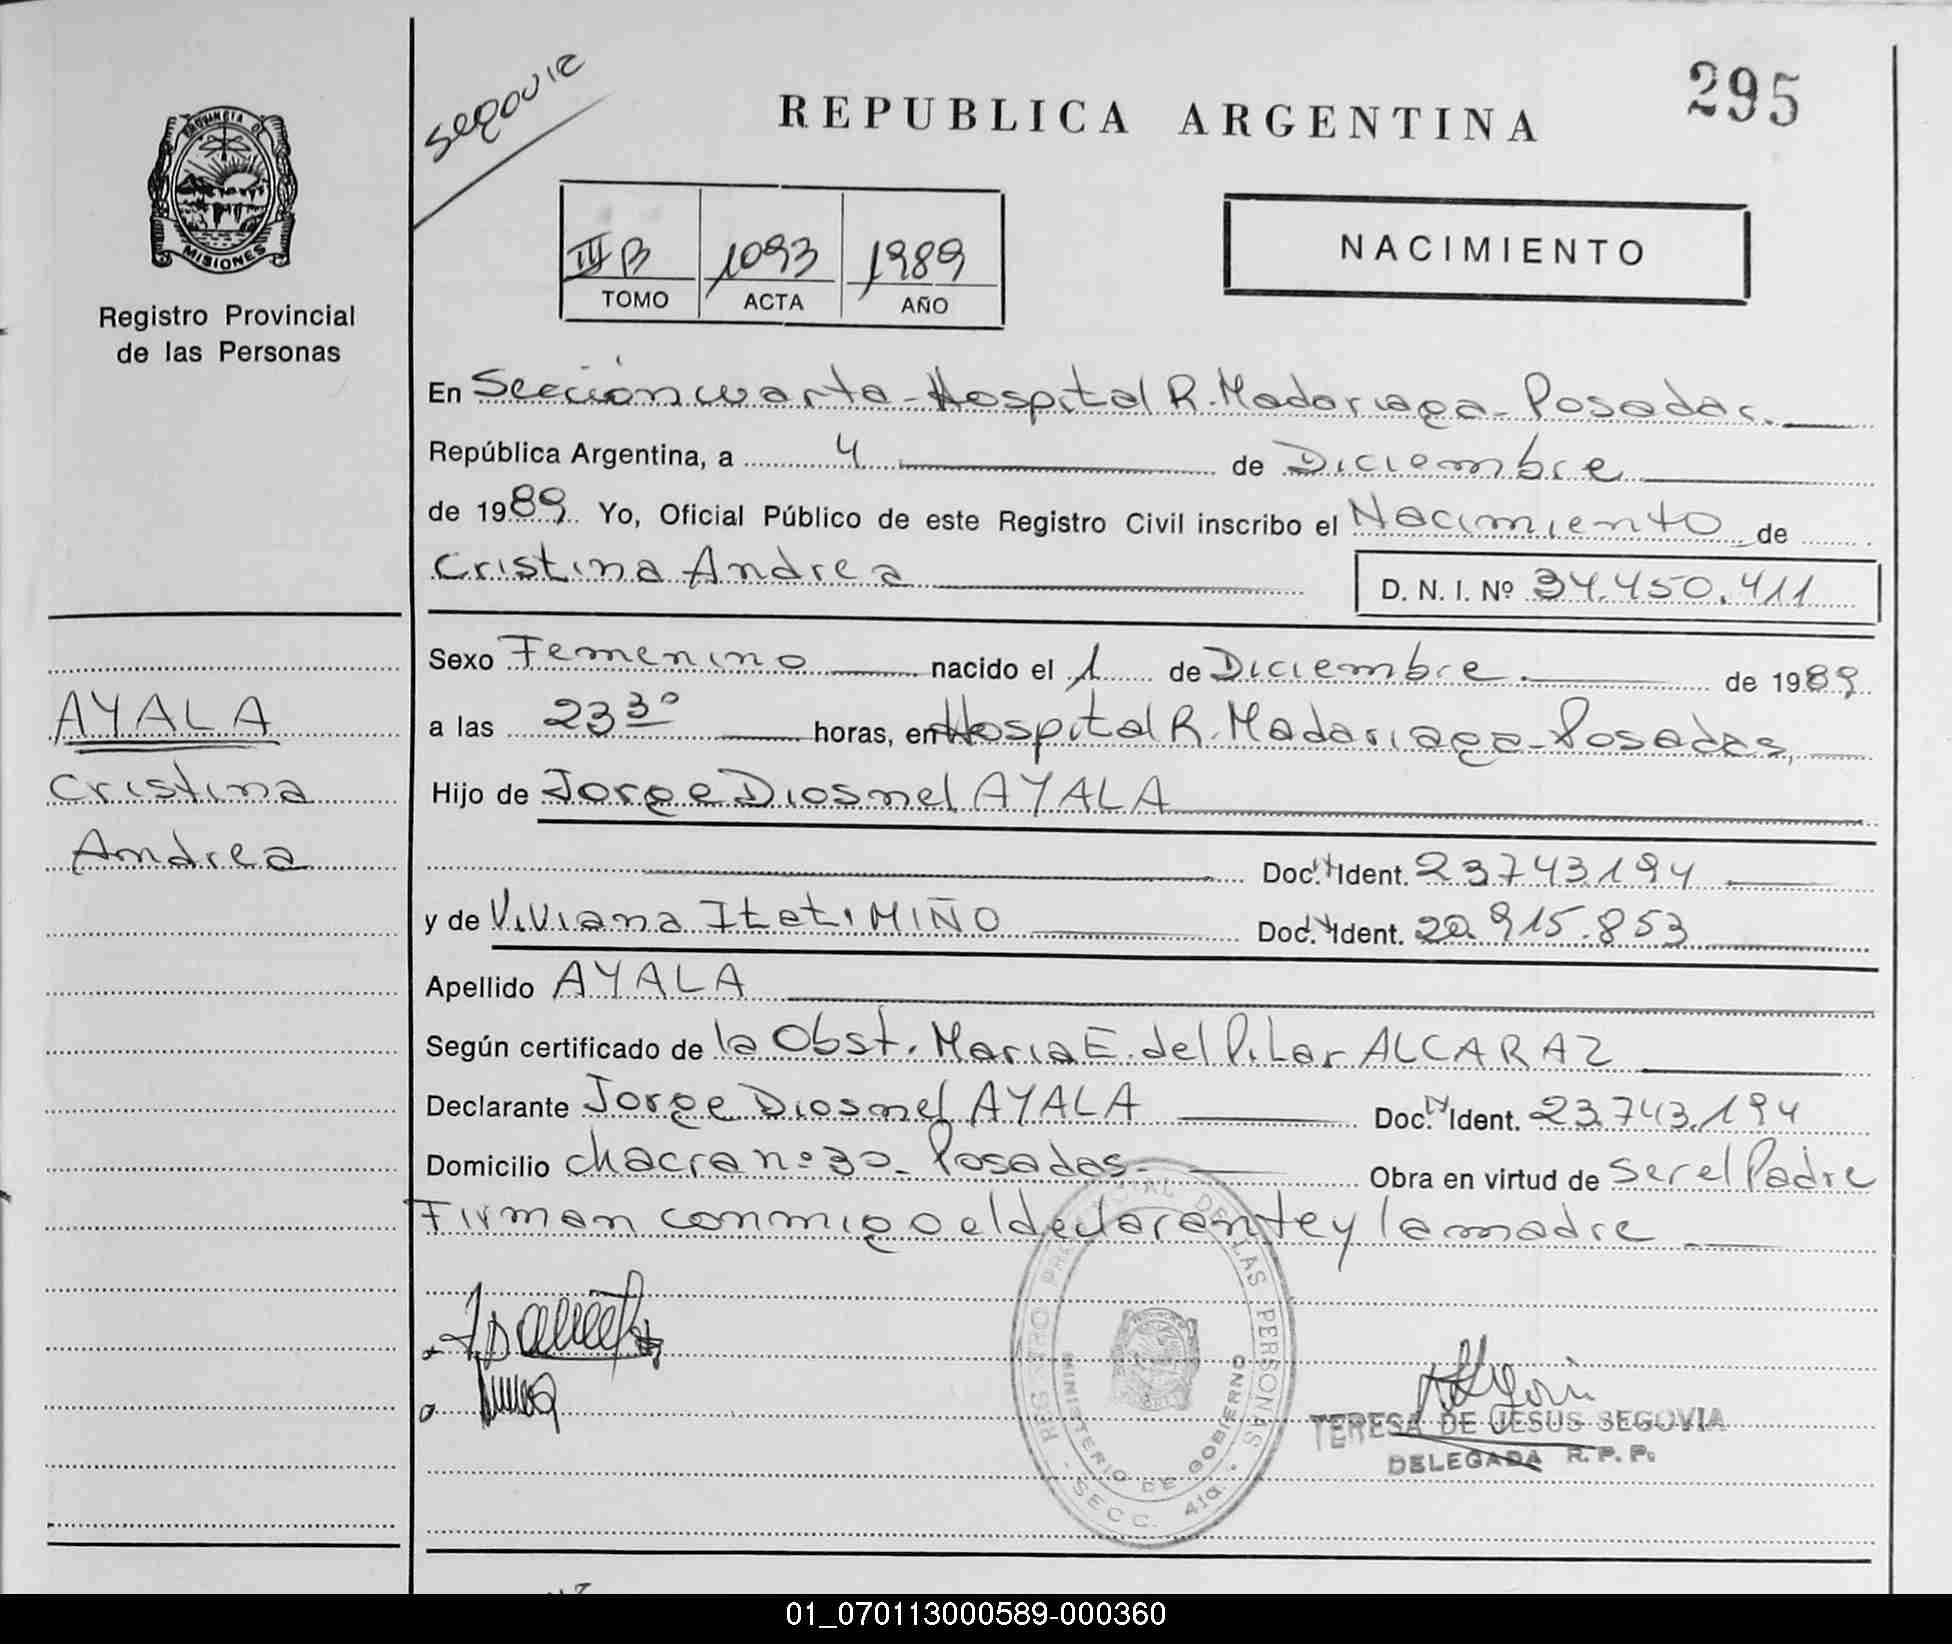 295
Segovia
REPUBLICA ARGENTINA
PROVINCIA DE
MISIONES
Registro Provincial
de las Personas
III B 1093 1989
TOMO ACTA AÑO
NACIMIENTO
En Sección cuarta - Hospital R. Madariaga - Posadas.
República Argentina, a 4 de Diciembre
de 1989. Yo, Oficial Público de este Registro Civil inscribo el Nacimiento de
Cristina Andrea
D. N. I. Nº 34.450.411
Sexo Femenino nacido el 1 de Diciembre de 1989
a las 23 30 horas, en Hospital R. Madariaga - Posadas,
Hijo de Jorge Diosnel AYALA
Doc. N Ident. 23743194
y de Viviana Itatí MIÑO Doc. N Ident. 20.915.853
Apellido AYALA
Según certificado de la Obst. Maria E. del Pilar ALCARAZ
Declarante Jorge Diosnel AYALA Doc. N Ident. 23.743.194
Domicilio chacra nº 30 - Posadas - Obra en virtud de ser el Padre
Firman conmigo el declarante y la madre
AYALA
Cristina
Andrea
REGISTRO PROVINCIAL DE LAS PERSONAS
MINISTERIO DE GOBIERNO
- SECC. 4ta. -
TERESA DE JESUS SEGOVIA
DELEGADA R. P. P.
01_070113000589-000360